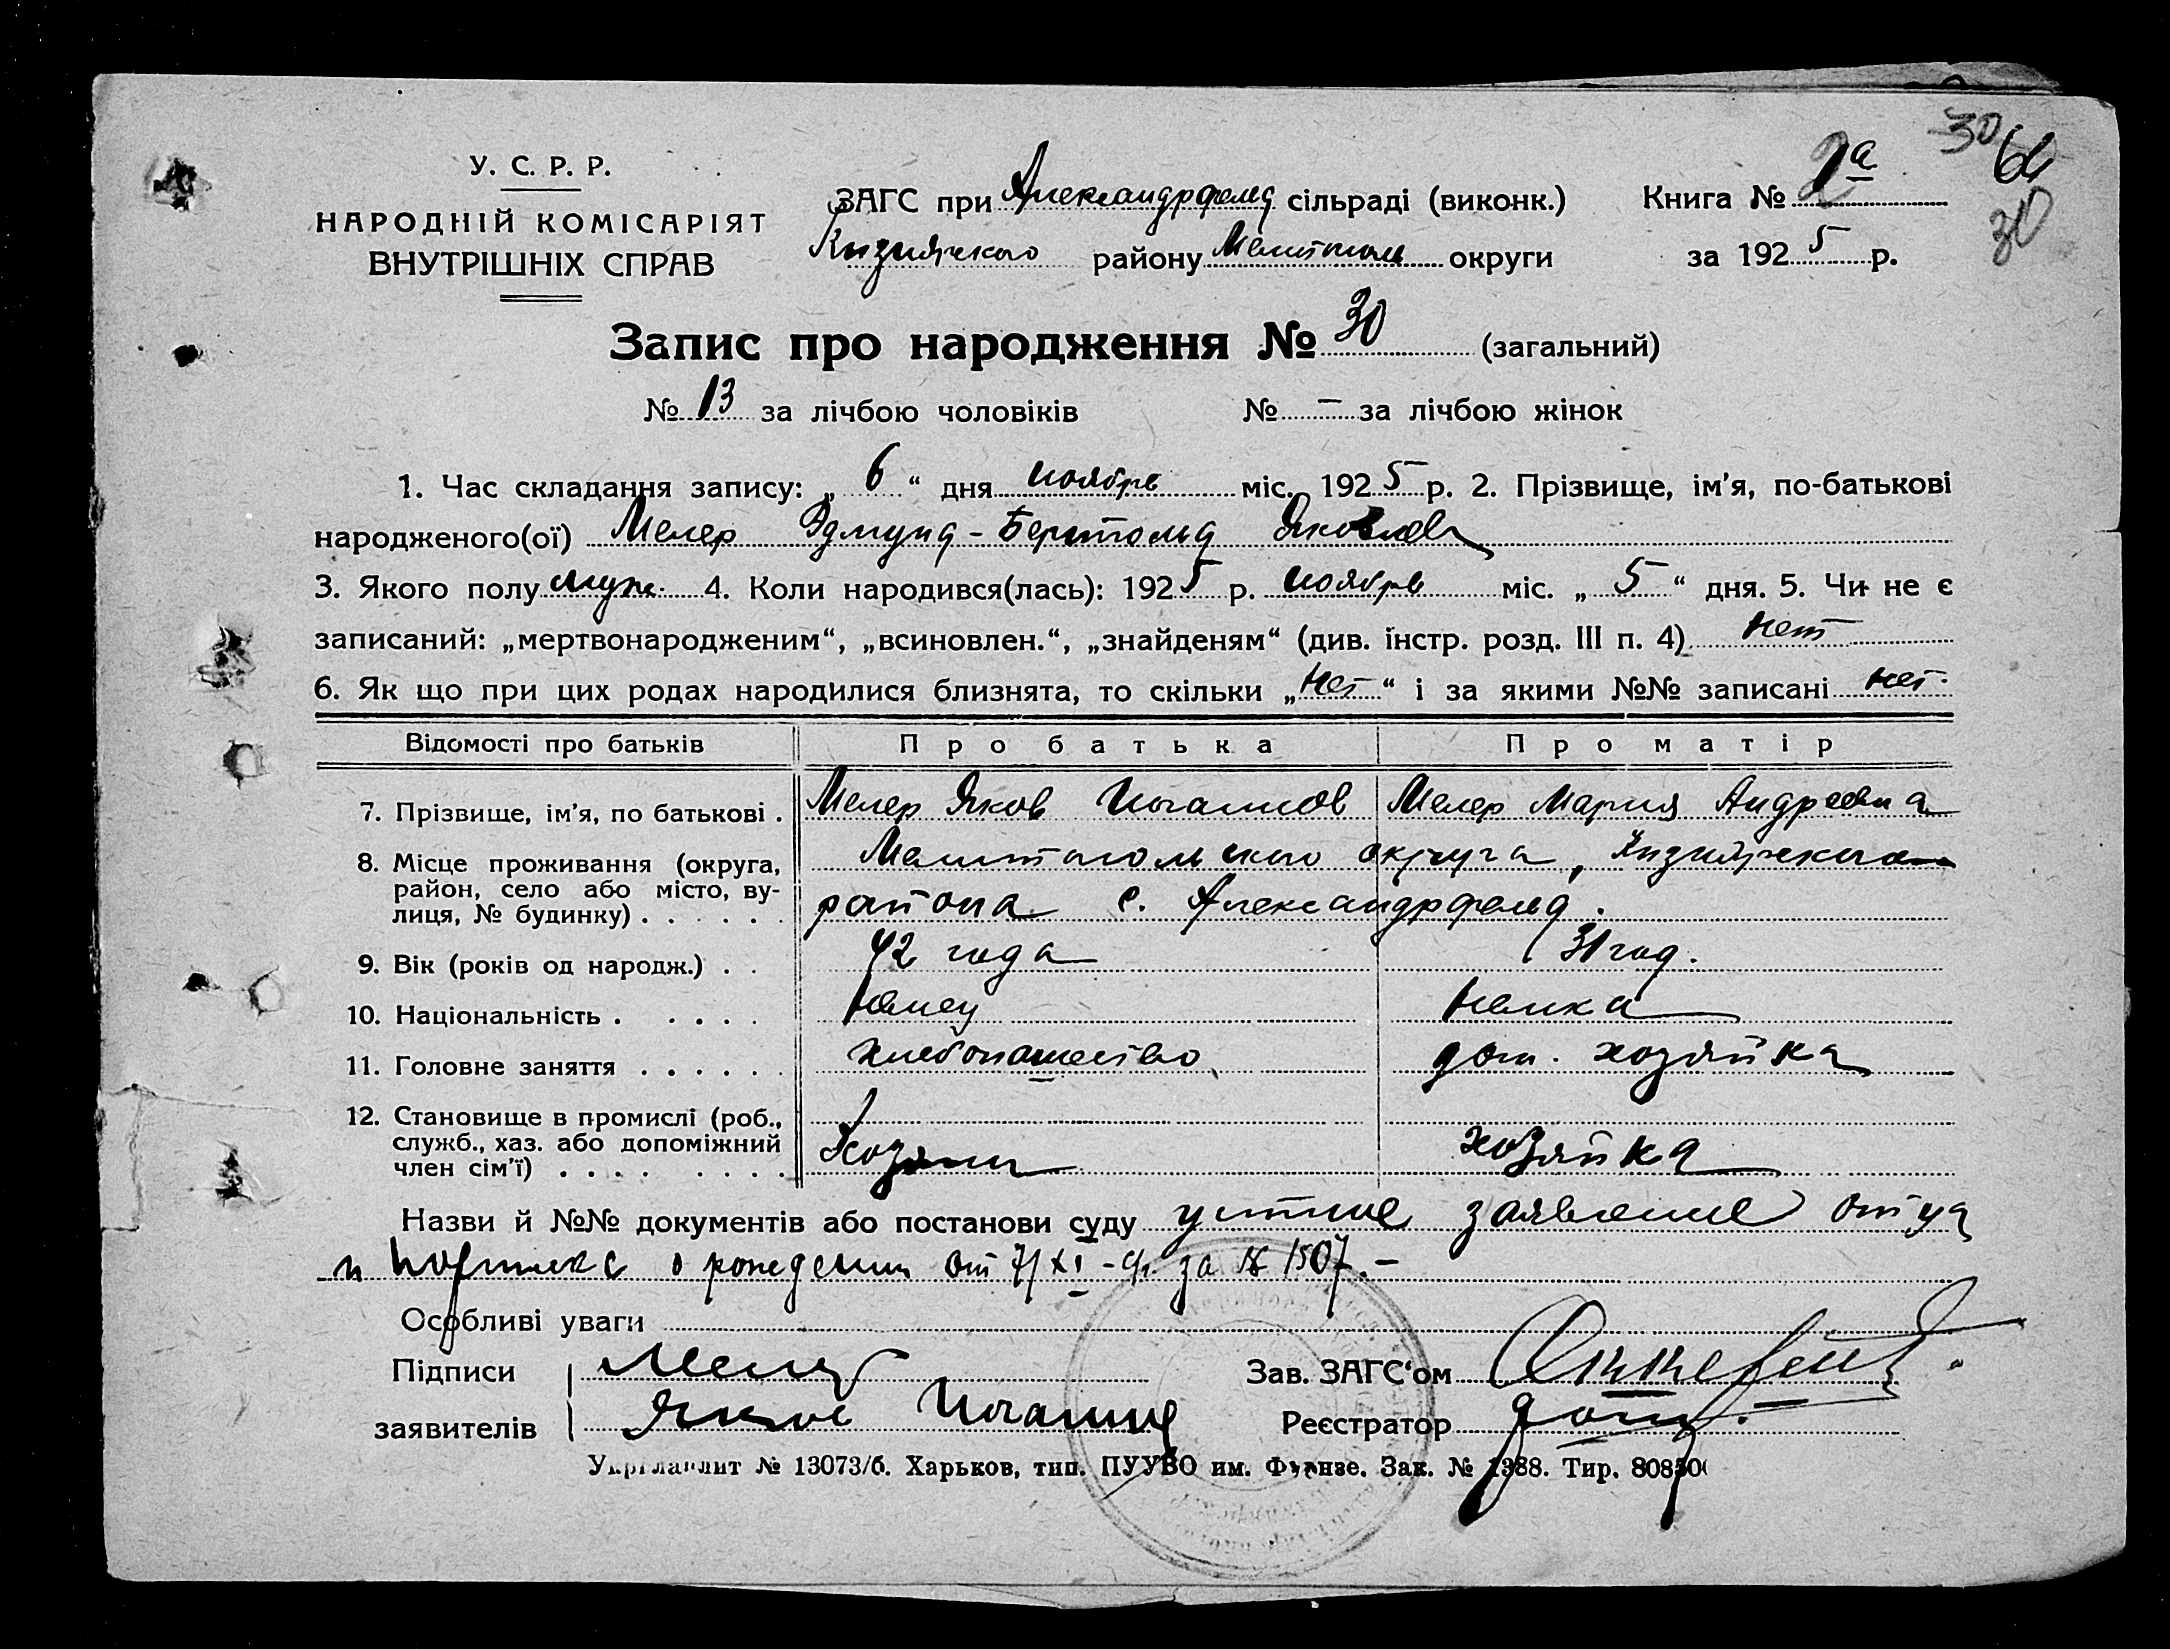 30 64
30
У. С. Р. Р.
НАРОДНІЙ КОМІСАРІЯТ
ВНУТРІШНІХ СПРАВ
ЗАГС при Александрфельд сільраді (виконк.) Книга № 1а
району округи за 1925 р.
Запис про народження № 30 (загальний)
№ 13 за лічбою чоловіків № — за лічбою жінок
1. Час складання запису: „ 6 “ дня ноября міс. 1925 р. 2. Прізвище, ім'я, по-батькові
народженого(ої) Мелер Эдмунд-Бертольд Яковлев
3. Якого полу муж. 4. Коли народився(лась): 1925 р. ноября міс. „ 5 “ дня. 5. Чи не є
записаний: „мертвонародженим“, „всиновлен.“, „знайденям“ (див. інстр. розд. III п. 4) нет
6. Як що при цих родах народилися близнята, то скільки „ нет “ і за якими №№ записані нет.
Відомості про батьків Про батька Про матір
7. Прізвище, ім'я, по батькові . Мелер Яков Иоганнов Мелер Мария Андреевна
8. Місце проживання (округа, округа,
район, село або місто, ву- района с. Александрфельд.
лиця, № будинку) . . . . . .
9. Вік (років од народж.) . . 42 года 31 год.
10. Національність . . . . . немец немка
11. Головне заняття . . . . . . хлебопашество дом. хозяйка
12. Становище в промислі (роб.,
служб., хаз. або допоміжний Хозяин хозяйка
член сім'ї) . . . . . . . .
Назви й №№ документів або постанови суду устное заявление отца
и о рождении от 7/XI за № 1507. —
Особливі уваги
Підписи Мелер Зав. ЗАГС‘ом
заявителів Яков Реєстратор
Укрглавлит № 13073/6. Харьков, тип. ПУУВО им. Фрунзе. Зак. № 1388. Тир.